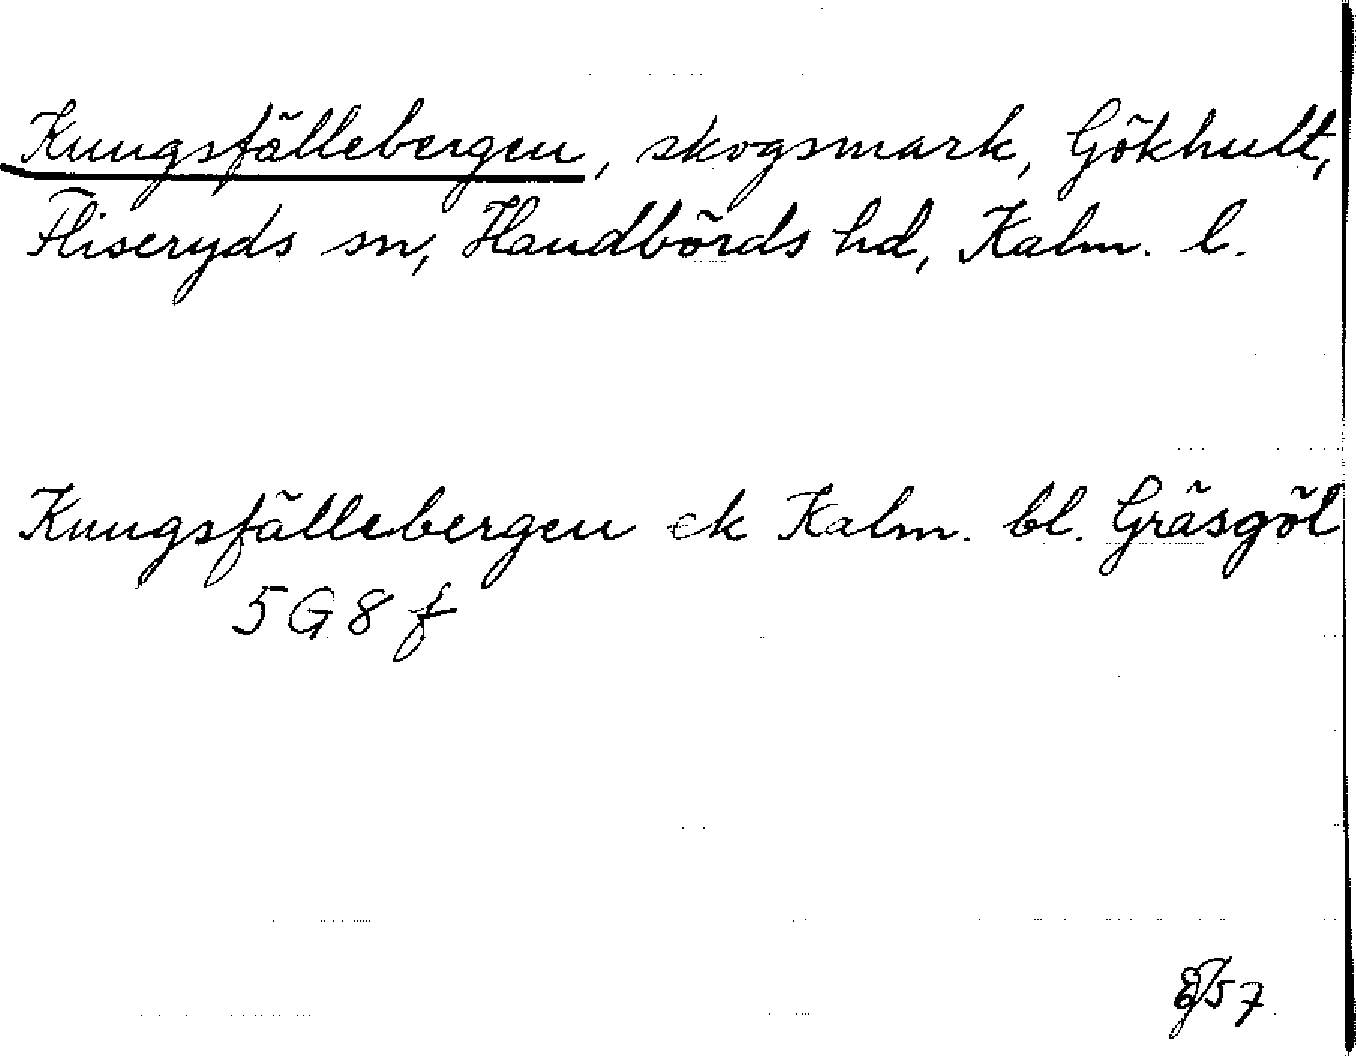 Kungsfällebergen, skogsmark, Gökhult,
Fliseryds sn, Handbörds hd, Kalm. l.
Kungsfällebergen ek Kalm. bl. Gräsgöl
5G8f
57